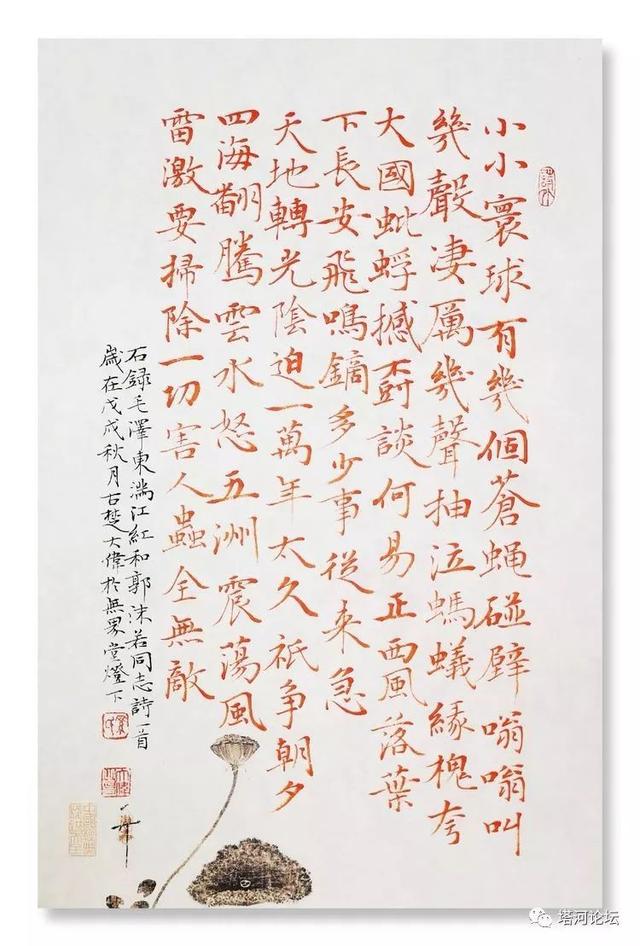 小小寰球有幾個蒼蝇碰壁嗡嗡叫
幾聲凄厲幾聲抽泣螞蟻緣槐夸
大國蚍蜉撼樹談何易正西風落葉
下長安飛鳴鏑多少事從来急
天地轉光陰迫一萬年太久衹争朝夕
四海翻騰雲水怒五洲震蕩風
雷激要掃除一切害人蟲全無敵
右録毛澤東满江紅和郭沫若同志詩一首
歲在戊戌秋月古楚大偉於無界堂燈下
塔河论坛